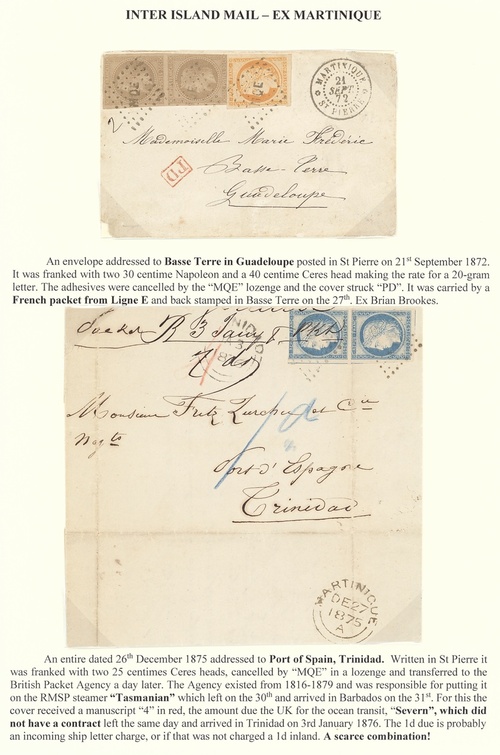 INTER ISLAND MAIL – EX MARTINIQUE
MQE
MARTINIQUE
21
SEPT
72
ST PIERRE
2
Mademoiselle Marie Fréderic
Basse-Terre
Guadeloupe
PD
An envelope addressed to Basse Terre in Guadeloupe posted in St Pierre on 21st September 1872.
It was franked with two 30 centime Napoleon and a 40 centime Ceres head making the rate for a 20-gram
letter. The adhesives were cancelled by the “MQE” lozenge and the cover struck “PD”. It was carried by a
French packet from Ligne E and back stamped in Basse Terre on the 27th. Ex Brian Brookes.
Monsieur Fritz et Cie
Negts
Port d'Espagne
Trinidad
MARTINIQUE
DE 27
1875
A
An entire dated 26th December 1875 addressed to Port of Spain, Trinidad. Written in St Pierre it
was franked with two 25 centimes Ceres heads, cancelled by “MQE” in a lozenge and transferred to the
British Packet Agency a day later. The Agency existed from 1816-1879 and was responsible for putting it
on the RMSP steamer “Tasmanian” which left on the 30th and arrived in Barbados on the 31st. For this the
cover received a manuscript “4” in red, the amount due the UK for the ocean transit, “Severn”, which did
not have a contract left the same day and arrived in Trinidad on 3rd January 1876. The 1d due is probably
an incoming ship letter charge, or if that was not charged a 1d inland. A scarce combination!